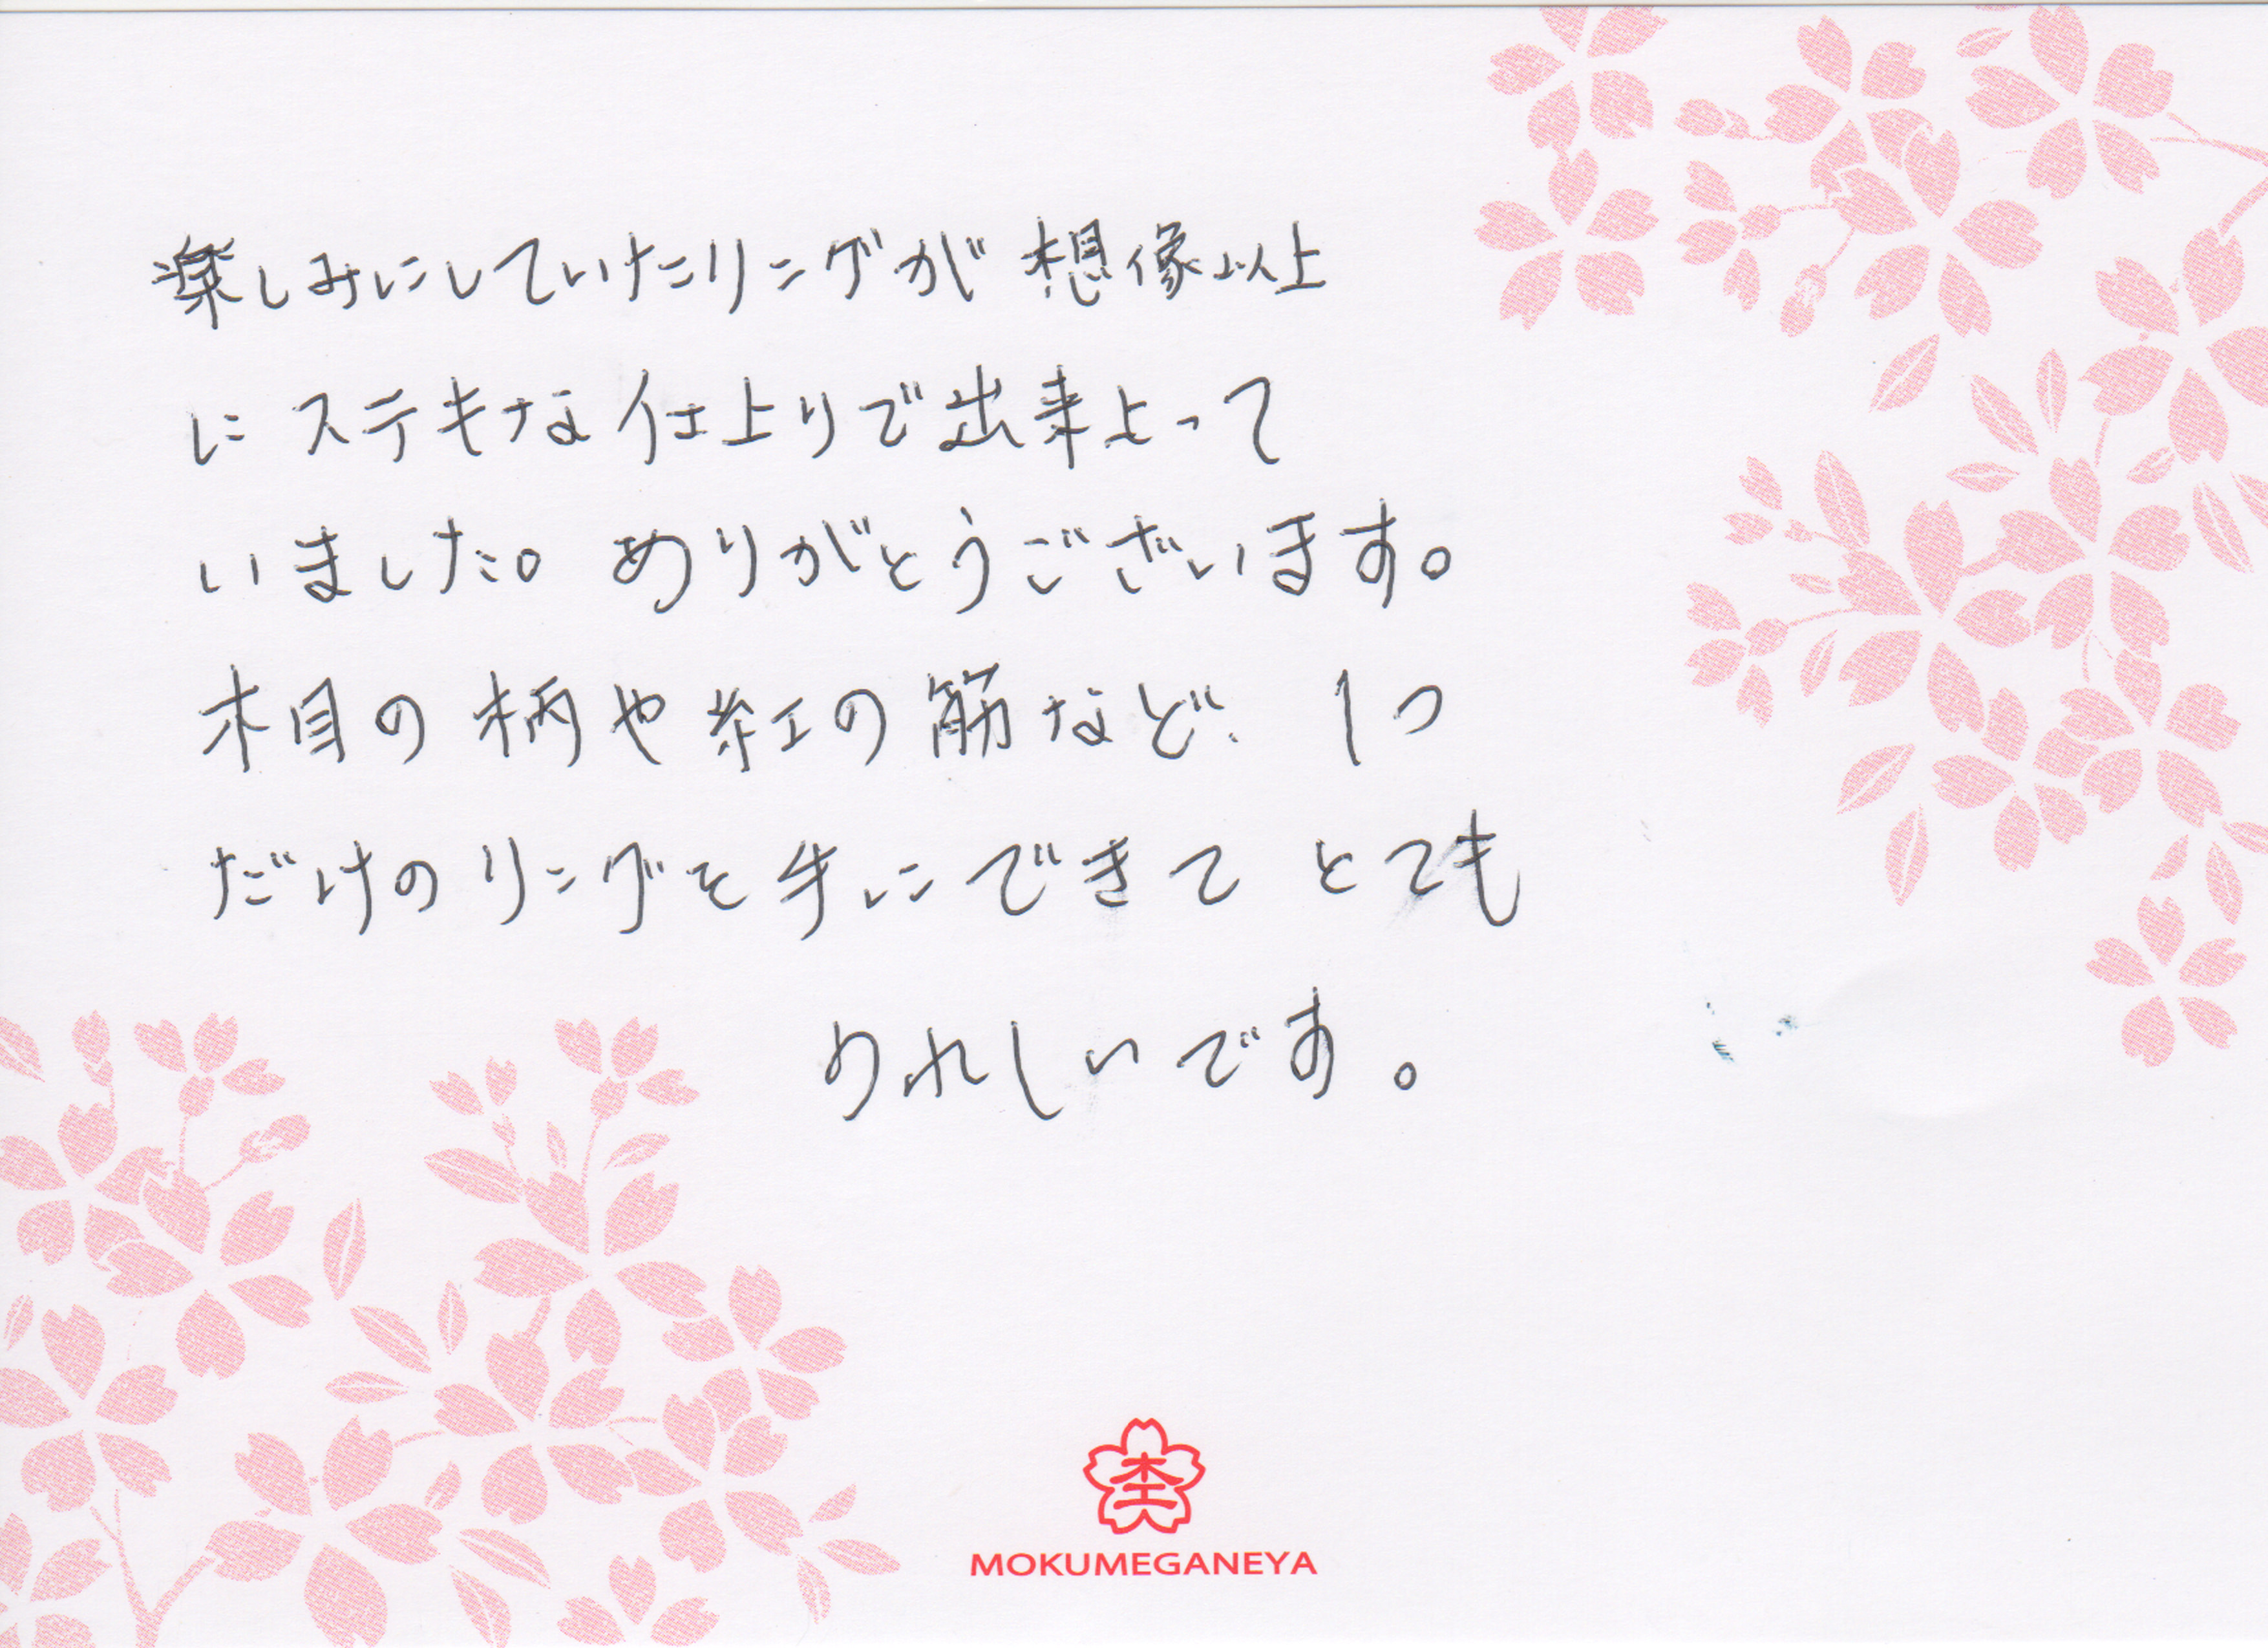 楽しみにしていたリングが想像以上
にステキな仕上りで出来上って
いました。ありがとうございます。
木目の柄や紅の筋など、1つ
だけのリングを手にできてとても
うれしいです。
杢
MOKUMEGANEYA